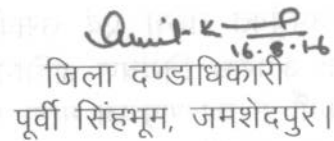 16.8.16
जिला दण्डाधिकारी
पूर्वी सिंहभूम, जमशेदपुर।